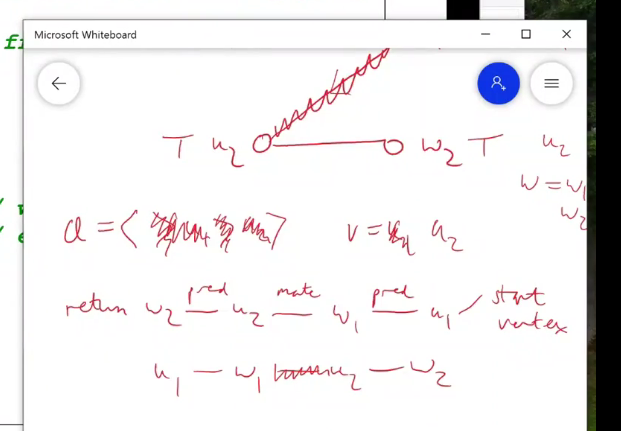 Microsoft Whiteboard
T u₂ w₂ T u₂
w = w₁
w₂
Q = < > v = u₂
return w₂ pred u₂ mate w₁ pred u₁ start vertex
u₁ — w₁ u₂ — w₂